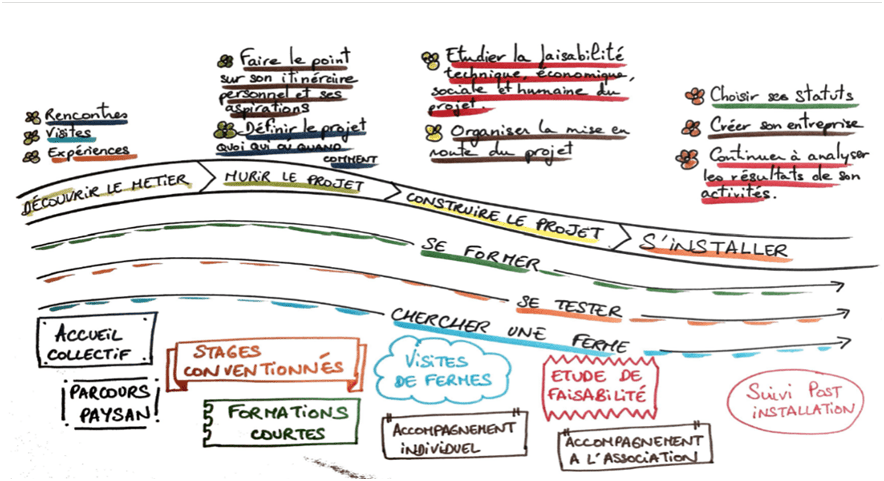 Rencontres
Visites
Expériences
Faire le point
sur son itinéraire
personnel et ses
aspirations
Définir le projet
QUOI QUI OÙ QUAND
COMMENT
Etudier la faisabilité
technique, économique,
sociale et humaine du
projet.
Organiser la mise en
route du projet
Choisir ses statuts
Créer son entreprise
Continuer à analyser
les résultats de son
activités.
DÉCOUVRIR LE METIER
MURIR LE PROJET
CONSTRUIRE LE PROJET
S'INSTALLER
SE FORMER
SE TESTER
CHERCHER UNE FERME
ACCUEIL
COLLECTIF
PARCOURS
PAYSAN
STAGES
CONVENTIONNÉS
FORMATIONS
COURTES
VISITES
DE FERMES
ACCOMPAGNEMENT
INDIVIDUEL
ETUDE DE
FAISABILITÉ
ACCOMPAGNEMENT
A L'ASSOCIATION
SUIVI POST
INSTALLATION